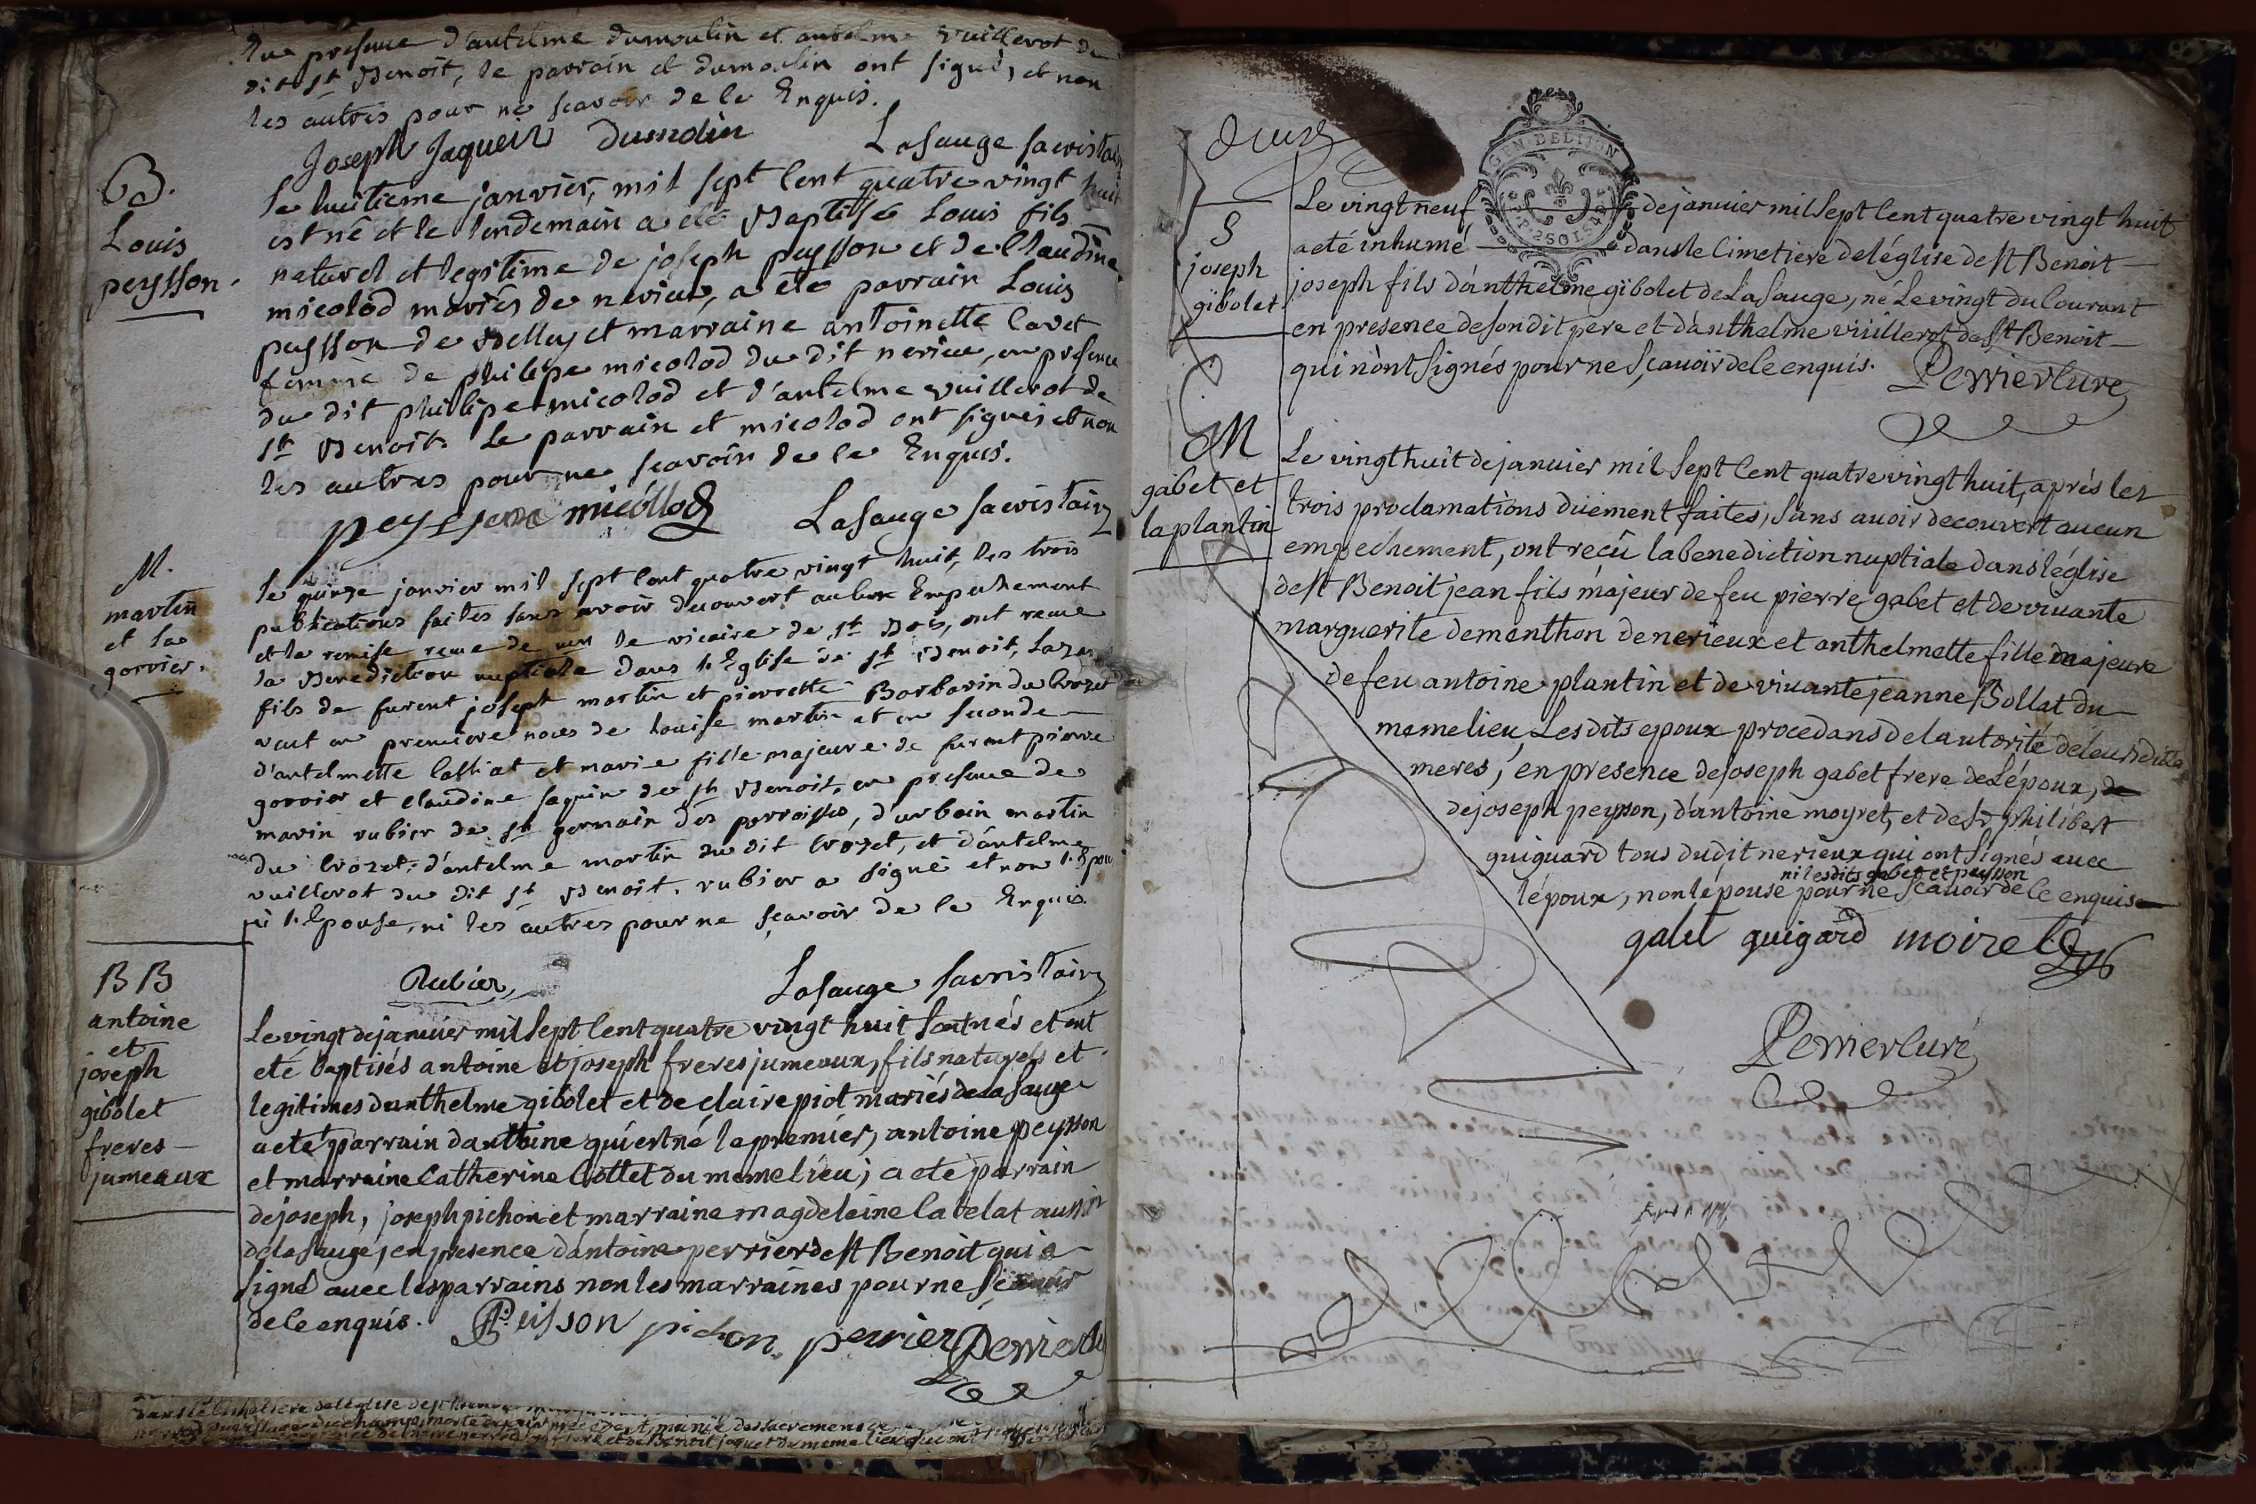 En presence d'antelme dumoulin et antelme vuillerot de
dit st Benoit, le parrain et dumoulin ont signé, et non
les autres pour ne scavoir de le Enquis.
Joseph Jaquet Dumolin Lasauge sacristain
B.
Louis
peysson.
le huitieme janvier, mil sept Cent quatre vingt huit
est né et le lendemain a été Baptisé Louis fils
naturel et legitime de joseph peysson et de Claudine
micolod mariés de nerieu, a été parrain Louis
peysson de Belley et marraine antoinette Cavet
femme de philipe micolod du dit nerieu, en presence
du dit philipe micolod et d'antelme vuillerot de
st Benoit. Le parrain et micolod ont signés et non
les autres pour ne scavoir de le Enquis.
peysson micollod Lasauge sacristain
M.
martin
et la
gorrier.
le quinze janvier mil sept Cent quatre vingt huit, les trois
publications faites sans avoir decouvert aucun Empechement
et la remise reçue de le vicaire de st Bois, ont reçue
la Benediction nuptiale dans l'Eglise de st Benoit,
fils de furent joseph martin et pierrette Barbarin du Crozet
veuf en premiere noces de louise martin et en seconde
d'antelmette Calliat et marie fille majeure de furent pierre
gorrier et claudine jaquin de st Benoit, en presence de
marin rubier de st germain des parroisses, d'urbain martin
du Crozet, d'antelme martin du dit Crozet, et d'antelme
vuillerot du dit st Benoit. rubier a signé et non l'Epoux
ni l'Epouse, ni les autres pour ne sçavoir de le Enquis.
Rubier, Lasauge sacristain
BB
antoine
et
joseph
gibolet
freres
jumeaux
Le vingt de janvier mil sept Cent quatre vingt huit sont nés et ont
eté baptisés antoine et joseph freres jumeaux, fils naturels et
legitimes danthelme gibolet et de claire piot mariés de la sauge
a eté parrain dantoine qui est né le premier, antoine peysson
et marraine Catherine Cottet du meme lieu; a eté parrain
de joseph, joseph pichon et marraine magdeleine Catelat aussi
de la sauge, en presence d'antoine perrier de st Benoit qui a
signé avec les parrains non les marraines pour ne scavoir
de le enquis. Peisson pichon perrier Perrier Curé
deux
S
joseph
gibolet
GEN. DE LYON
Le vingt neuf de janvier mil sept Cent quatre vingt huit
a eté inhumé dans le Cimetiere de l'église de st Benoit
joseph fils d'anthelme gibolet de La Sauge, né Le vingt du Courant
en presence de son dit pere et d'anthelme vüillerot de st Benoit
qui n'ont signés pour ne sçauoir de le enquis. Perrier Curé
M
gabet et
la plantin
Le vingt huit de janvier mil sept Cent quatre vingt huit, aprés les
trois proclamations düement faites, sans avoir decouvert aucun
empechement, ont reçû la benediction nuptiale dans l'église
de st Benoit jean fils majeur de feu pierre gabet et de vivante
marguerite dementhon de nerieux et anthelmette fille majeure
de feu antoine plantin et de vivante jeanne Bollat du
meme lieu, Les dits epoux procedans de l'autorité de leurs dittes
meres, en presence de joseph gabet frere de L'époux, de
de joseph peysson, d'antoine moyret, et de sr philibert
guiguard tous du dit nerieux qui ont signés avec
ni les dits gabet et peysson
l'époux, non l'épouse pour ne scavoir de le enquis
gabet guigard moiret
Perrier Curé